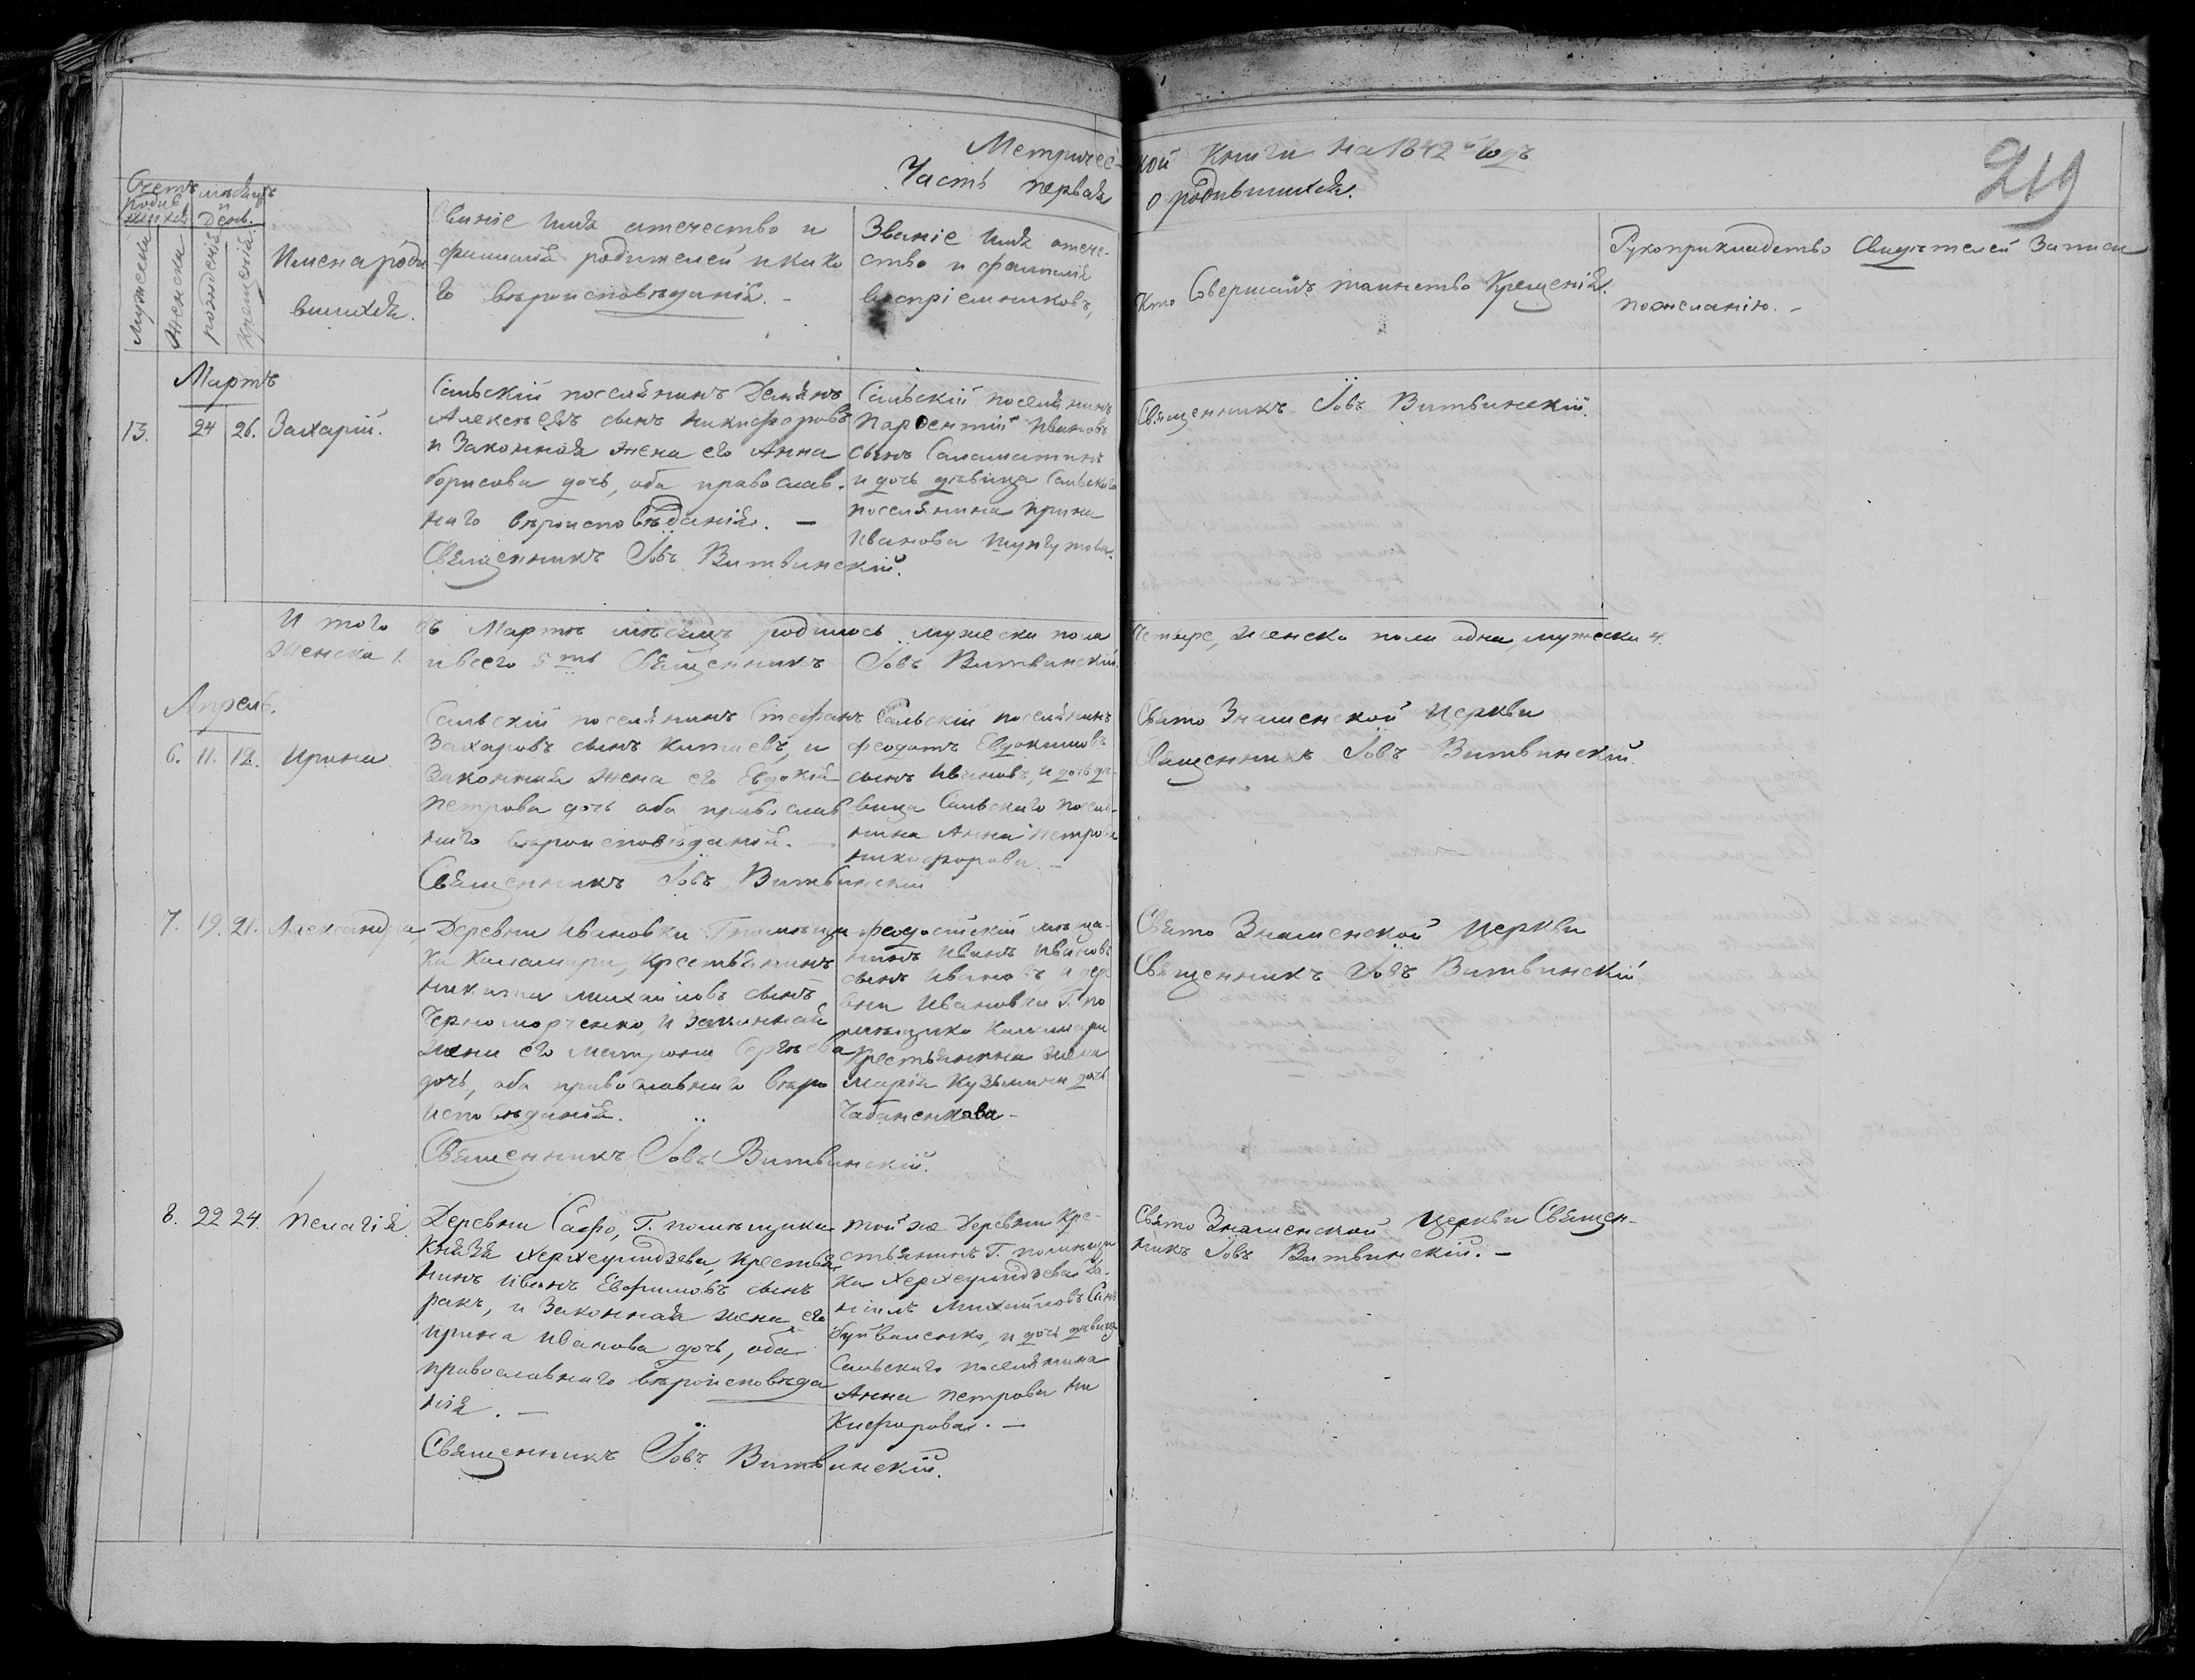 Метричес-
кой Книги на 1842й годъ
Часть первая
о родившихся.
219
Счетъ родив шихся
мѣсяцъ и День.
Мужескій
Женскій
рожденія
Крещенія
Имена роди
вшихся.
Званіе Имя отечество и
фамилія родителей и како
го вѣроисповѣданія. -
Званіе Имя отече-
ство и фамилія
воспріемниковъ,
Кто Совершалъ таинство Крещенія.
Рукоприкладство Свидѣтелей Записи
по желанію. -
Мартъ
13. 24 26. Захарій.
Сальскій поселянинъ Демянъ
Алексѣевъ сынъ Никифоровъ
и Законная жена его Анна
борисова дочь, оба православ-
наго вѣроисповѣданія. -
Священникъ Іовъ Витвинскій.
Сальскій поселянинъ
Парфентій Ивановъ
сынъ Саламатинъ
и дочь дѣвица Сальскаго
поселянина Ирина
Иванова Шунгутова.
Священникъ Іовъ Витвинскій.
И того въ Мартѣ мѣсяцѣ родилось мужеска пола четыре, Женска пола одна, мужеска 4.
Женска 1. и всего 5ть Священникъ Іовъ Витвинскій.
Апрель.
6. 11. 12. Ирина
Сальскій поселянинъ Стефанъ
Захаровъ сынъ Китаевъ, и
Законная жена его Евдокія
Петрова дочь оба православ
наго вѣроисповѣданія. -
Священникъ Іовъ Витвинскій
Сальскій поселянинъ
феодотъ Евдокимовъ
сынъ Ивановъ, и дочь дѣ-
вица Сальскаго посел-
нина Анна Петрова
Никифорова. -
Свято Знаменской Церкви
Священникъ Іовъ Витвинскій.
7. 19. 21. Александра,
Деревни Ивановки Г помѣщи
ка Каламари, Крестьянинъ
Никита Михайловъ сынъ
Черноморченко, и Законная
жена его Матрона Сергѣева
дочь, оба православнаго вѣро
исповѣданія.
Священникъ Іовъ Витвинскій.
феодосійскій мѣща-
нинъ Иванъ Ивановъ
сынъ Ивановъ, и дере
вни Ивановки Г. по
мѣщика Каламари
Крестьянина жена
Марія Кузьмина дочь
Чабаненкова -
Свято Знаменской Церкви
Священникъ Іовъ Витвинскій
8. 22 24. Пелагія
Деревни Сафо, Г. помѣщика
Князя Херхеулидзева, Крестья
нинъ Иванъ Евфимовъ сынъ
ракъ, и Законная жена его
Ирина Иванова дочь, оба
православнаго вѣроисповѣда
нія. -
Священникъ Іовъ Витвинскій.
той же Деревни Кре-
стьянинъ Г. помѣщи
ка Херхеулидзева Да-
ніилъ Михайловъ Сынъ
буйваленко, и дочь дѣвица
Сальскаго поселянина
Анна Петрова Ни
кифорова. -
Свято Знаменской Церкви Священ-
никъ Іовъ Витвинскій. -